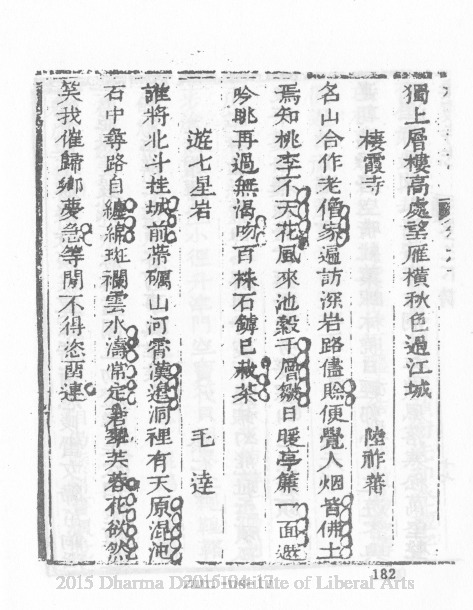 獨上層樓高處望雁橫秋色過江城
棲霞寺 陸祚蕃
名山合作老僧家遍訪深岩路儘賒便覺人烟皆佛土
焉知桃李不天花風來池縠千層皺日暖亭簾一面遮
吟眺再過無渴吻百株石罅已救茶
遊七星岩 毛逵
誰將北斗挂城前帶礪山河霄漢邊洞裡有天原混沌
石中尋路自纏綿斑斕雲水濤常定 芙蓉花欲然
笑我催歸鄉夢急等閒不得恣留連
182
2015 Dharma D te of Liberal Arts